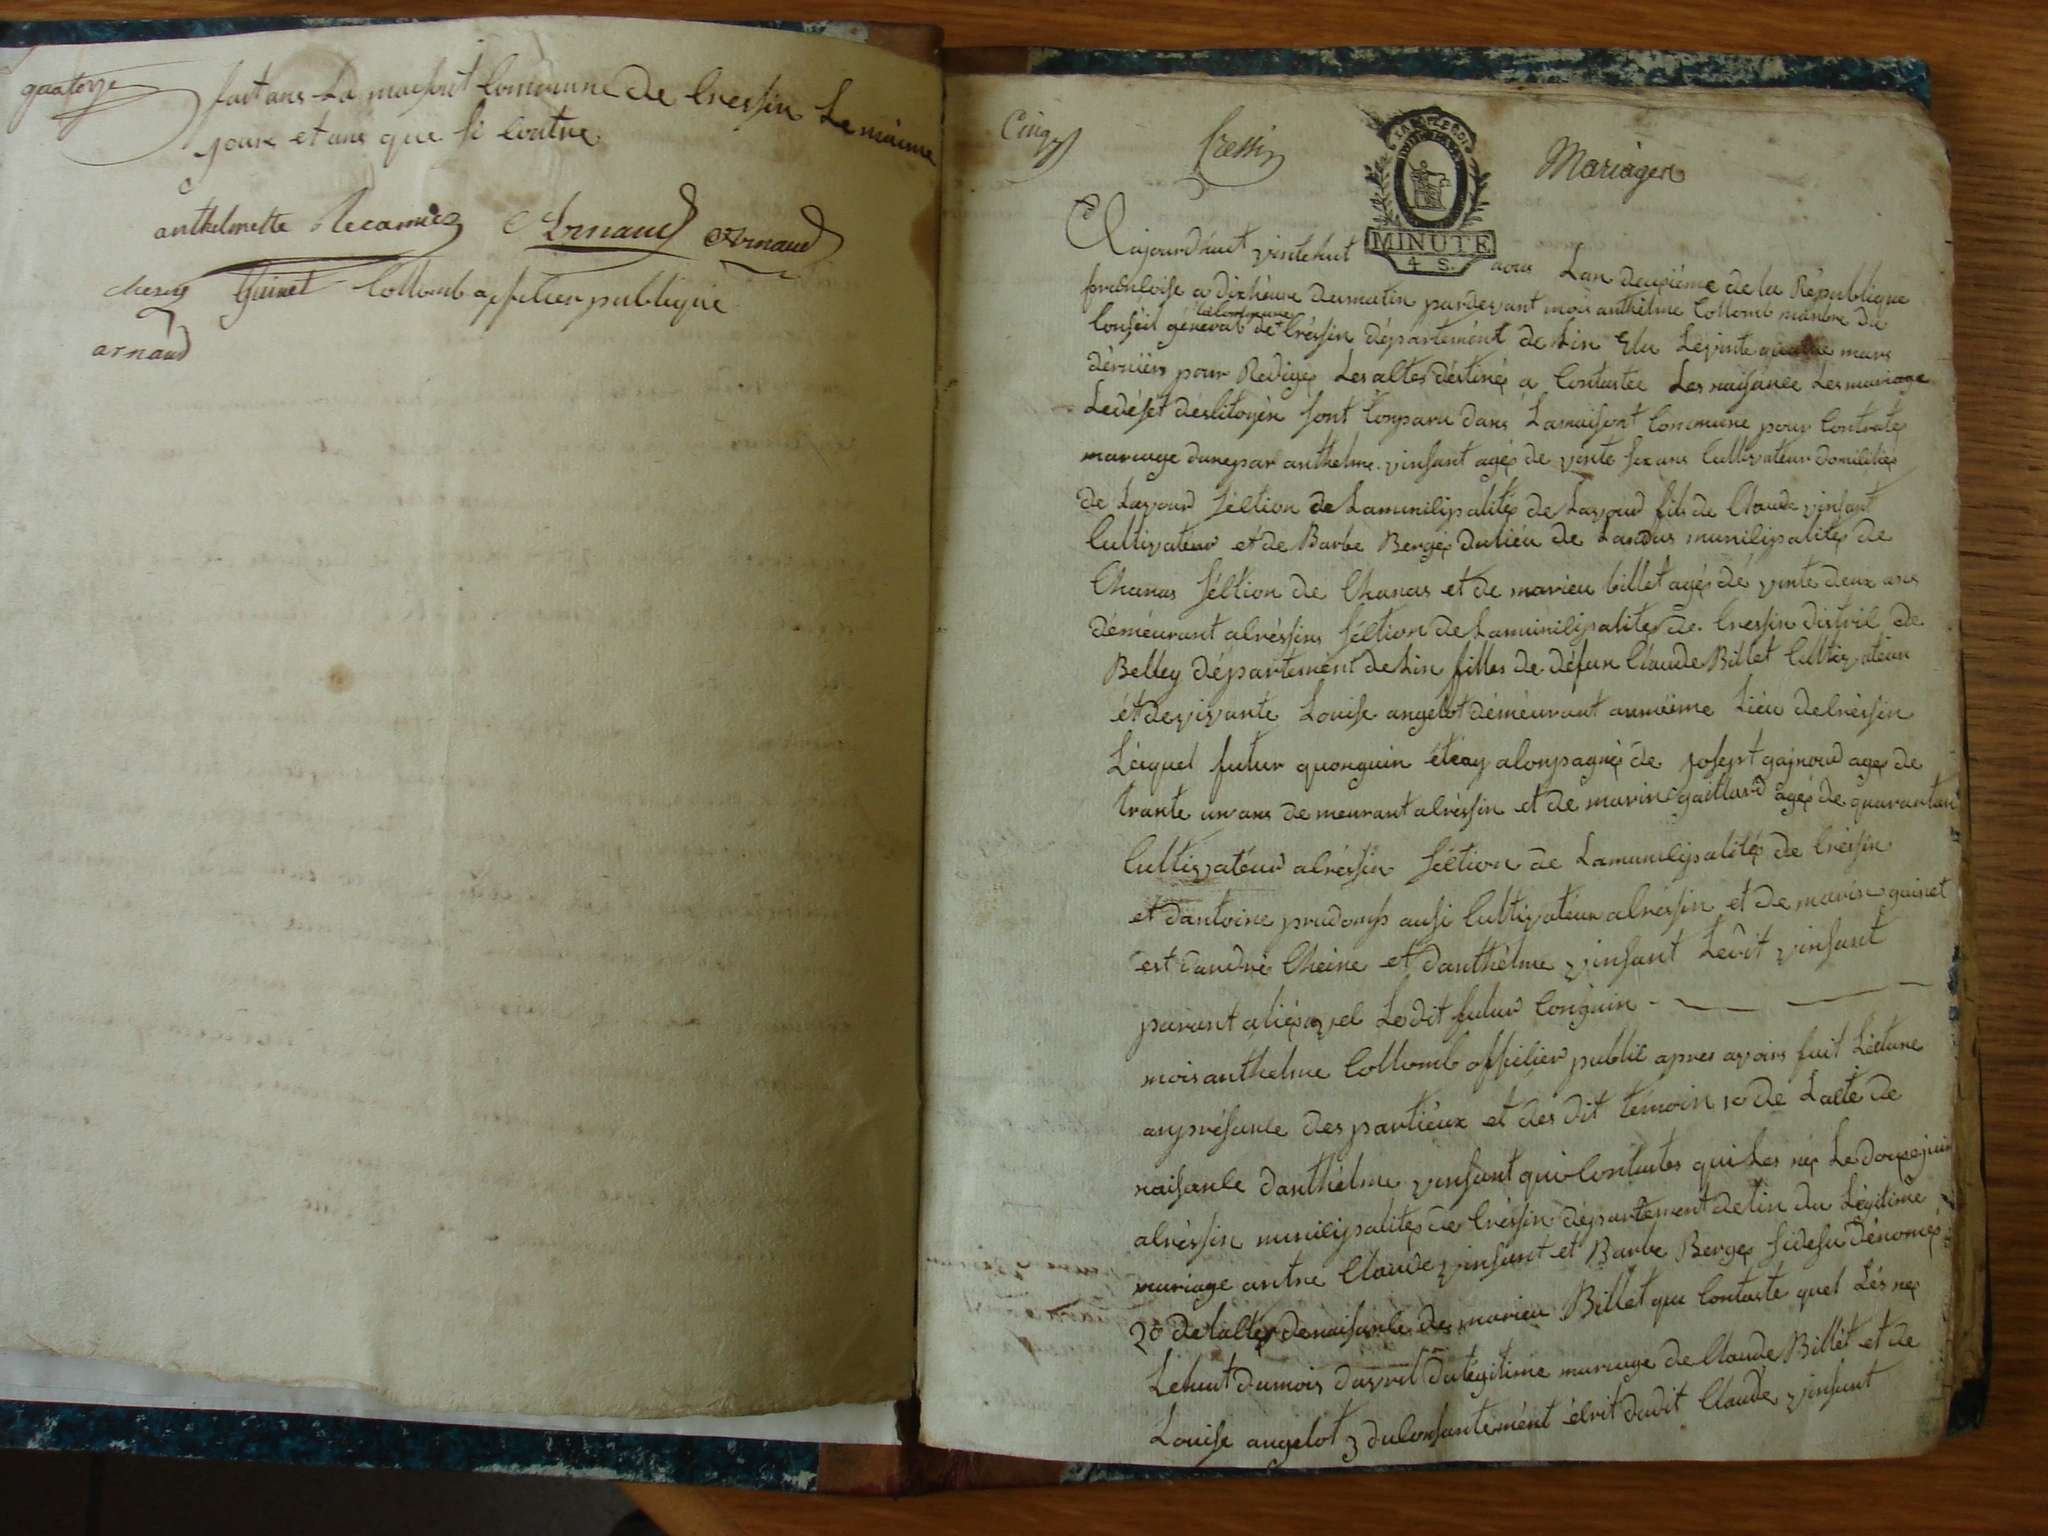 quatorze
fait ans La maisont Commune de Cressin Le maime
jour et ans que si Contre
anthelmette Recamie Arnaud Arnaud
Guinet Collomb offitier publique
arnaud
Cinq
Cressin
Mariages
LA LOI LE ROI
MINUTE
4 S.
Aujourdhuit vintehuit aous Lan deuxième de la République
franloise a dixheure dumatin pardevant mois anthelme Collomb manbre du
Conseil général de la Commune Cressin département de Lin Elu Levinte quatre mars
dérniérs pour Rediges Les altes déstinés a Contastee Les naisance Les mariage
Ledéset déslitoyén sont Conparu dans Lamaisont Commune pour Contrates
mariage dunepar anthelme vinsant agés de vinte six ans Cultivateur domiliés
de Lavour séltion de Lamunilipalités de Lavour fils de Claude vinsant
Cultivateur et de Barbe Berges dulieu de Landas munilipalités de
Chanas séltion de Chanas et de marieu billet agés de vinte deux ans
déméurant alréssins séltion de Lamunilipalités de Cressin distril de
Belley département de Lin filles de défun Claude Billet Cultivateur
et devivante Louise angelot déméurant aumême Lieu delréssin
Léquel futur quonguin alonpagnés de Josept gajnoud ages de
trante un ans demeurant alréssin et de marin gaillard agés de quarantan
Cultivatéur alréssin séltion de Lamunilipalités de Créssin
et dantoine prudomp ausi Cultivatéur alréssin et de marin guinet
est dandré Cheine et danthélme vinsant Ledit vinsant
parant aliés Ledit futur Conguin
mois anthelme Collomb offilier public apres avoirs fait Lécture
anprésanle des partiéux et dés dit témoin 1o de Lalte de
naisanle danthélme vinsant qui Contastes qui Les nés Le douse juin
alréssin munilipalités de Créssin département delin du Légitime
mariage antre Claude vinsant et Barbe Berges sidesu dénomés
2o delaltes denaisanle de marieu Billet qui Contaste quel Lés nes
Lehuit dumois davril du Légitime mariage de Claude Billet et de
Louise angelot 3 du Consantemént élrit dudit Claude vinsant